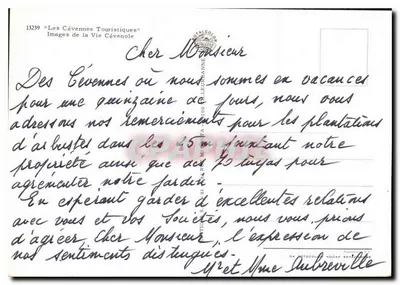 13239 "Les Cévennes Touristiques"
Images de la Vie Cévenole
Cher Monsieur
Des Cévennes où nous sommes en vacances
pour une quinzaine de jours, nous vous
adressons nos remerciements pour les plantations
d'arbustes dans les 45 m jouxtant notre
propriété ainsi que des 20 tuyas pour
agrémenter notre jardin.
En espérant garder d'excellentes relations
avec vous et vos Sociétés, nous vous prions
d'agréer, Cher Monsieur, l'expression de
nos sentiments distingués.
Mr et Mme Aubreville